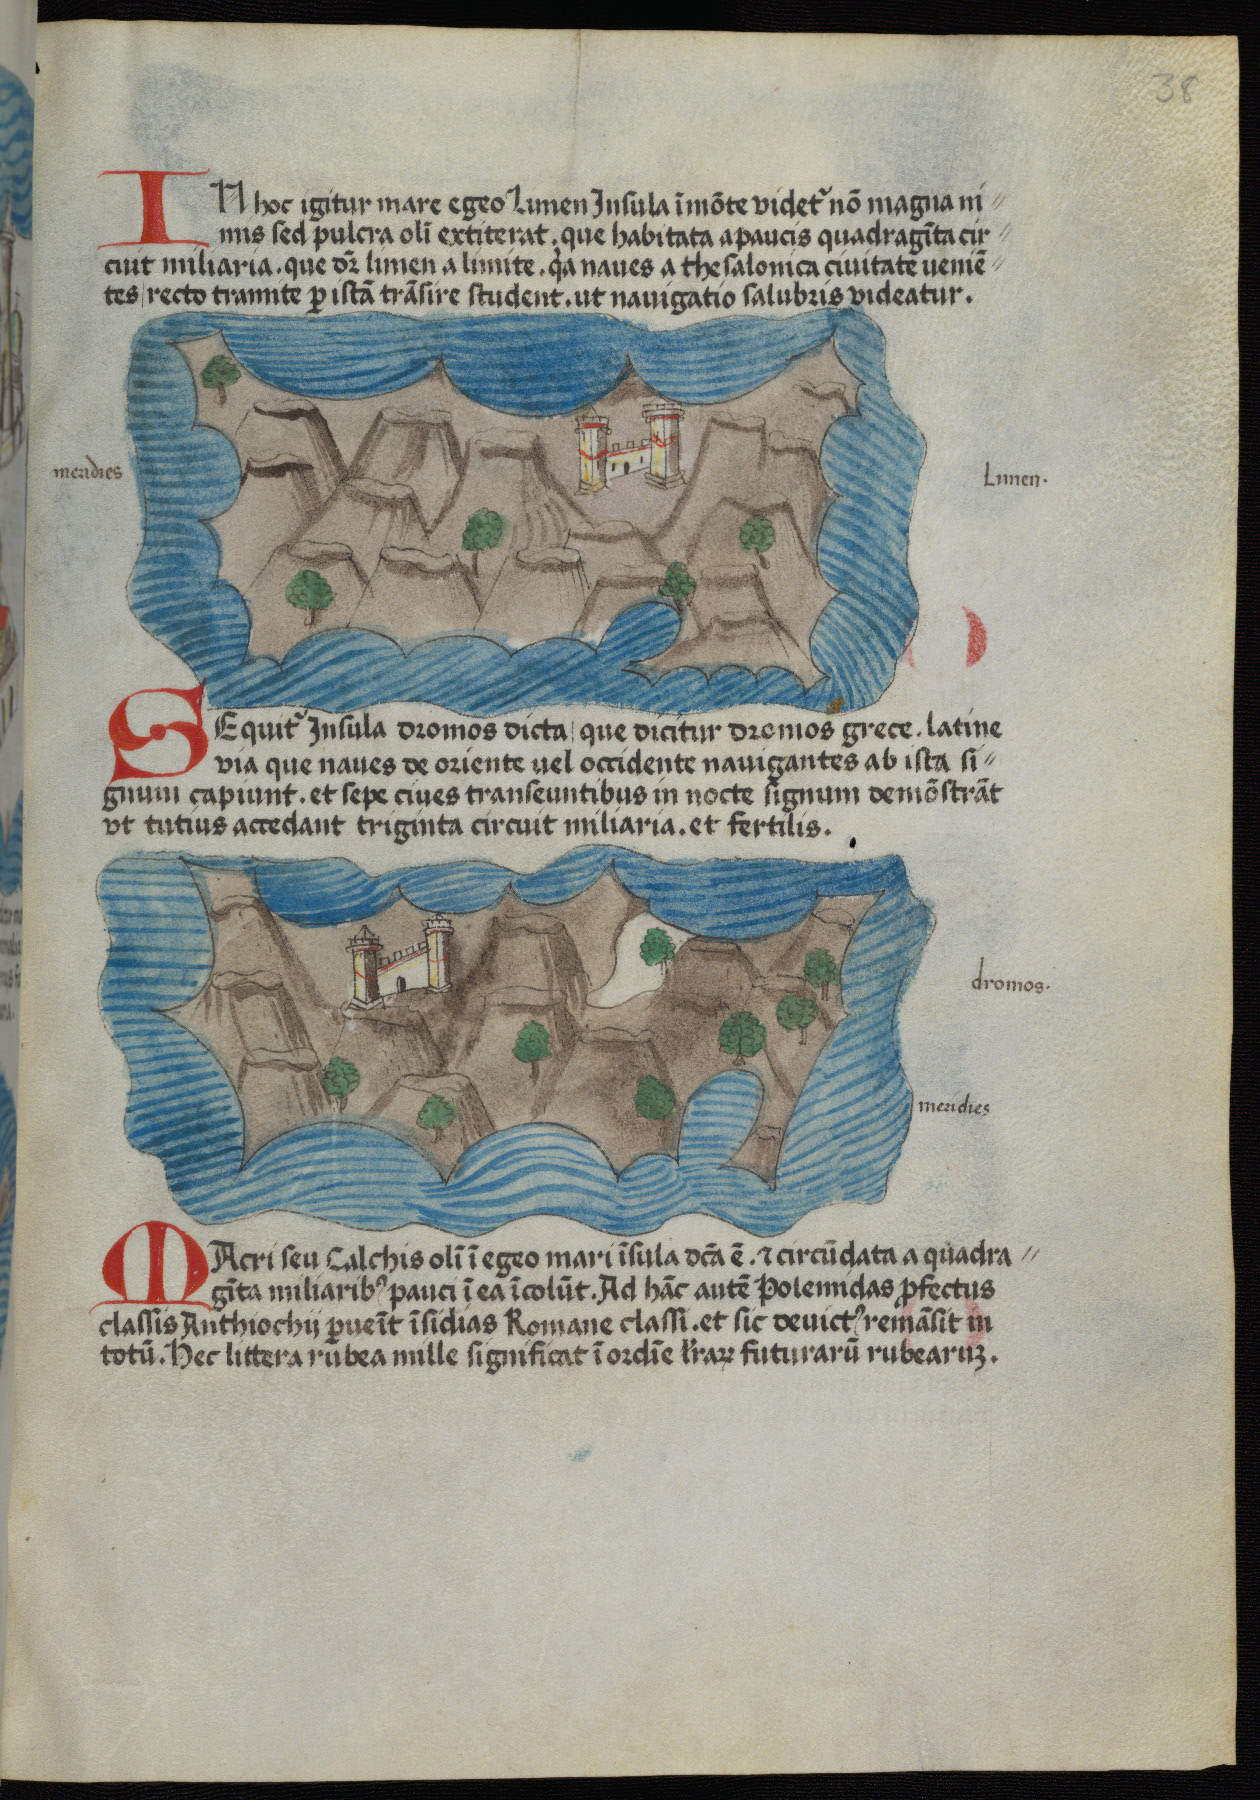 38
IN hoc igitur mare egeo Limen Insula ī mōte videt᷑ nō magna ni⸗
mis sed pulcra olī extiterat. que habitata a paucis quadragīta cir⸗
cuit miliaria. que dr̄ limen a limite. qa naues a thesalonica ciuitate ueniē⸗
tes recto tramite ꝑ istā trāsire student. ut nauigatio salubris videatur.
meridies
Limen.
SEquit᷑ Insula dromos dicta que dicitur dromos grece. latine
via que naues de oriente uel occidente nauigantes ab ista si⸗
gnum capiunt. et sepe ciues transeuntibus in nocte signum demōstrāt
vt tutius accedant triginta circuit miliaria. et fertilis.
dromos.
meridies
MAcri seu Calchis olī ī egeo mari īsula dc̄a ē. ⁊ circūdata a quadra⸗
gīta miliaribꝰ pauci ī ea īcolūt. Ad hāc autē Polemidas ꝓfectus
classis Anthiochij ꝑueīt īsidias Romane classi. et sic deuictꝰ remāsit in
totū. Hec littera rubea mille significat ī ordīe lr̄aꝝ futurarū rubearuꝫ.